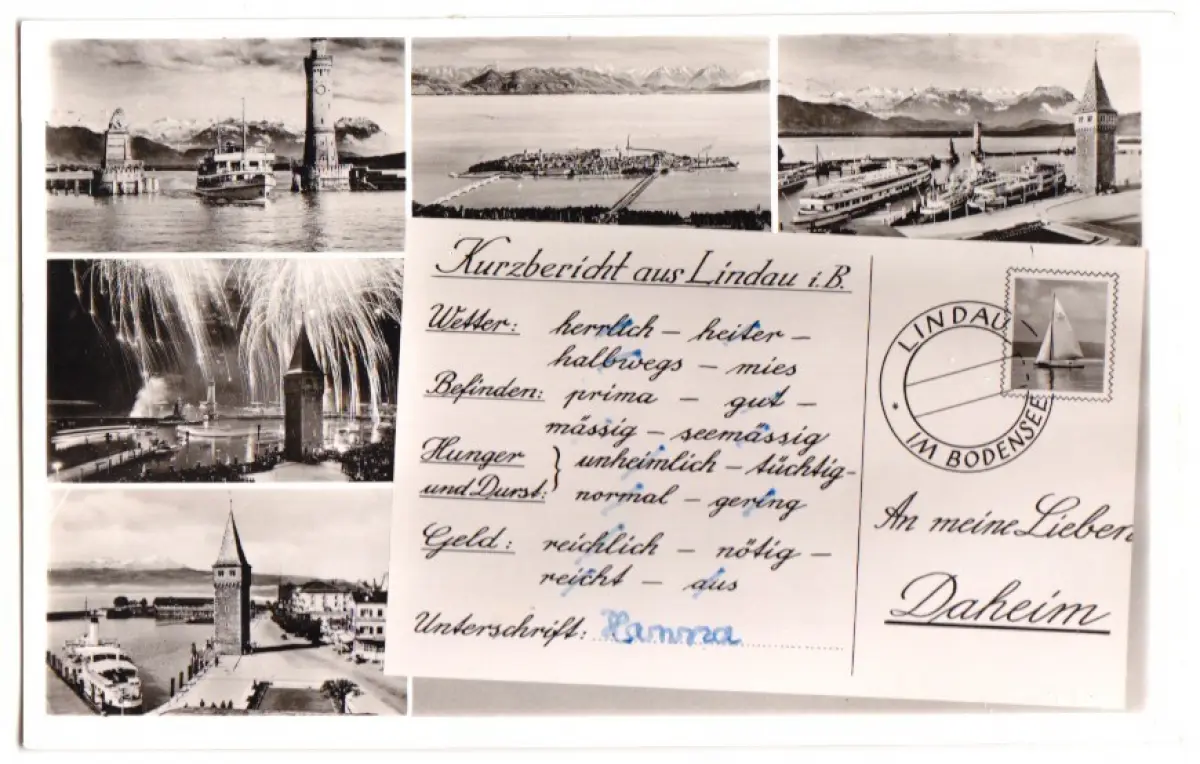 Kurzbericht aus Lindau i. B.
Wetter: herrlich – heiter –
halbwegs – mies
Befinden: prima – gut –
mässig – seemässig
Hunger
und Durst: } unheimlich – tüchtig –
normal – gering
Geld: reichlich – nötig –
reicht – aus
Unterschrift: Hanna
LINDAU
IM BODENSEE
An meine Lieben
Daheim